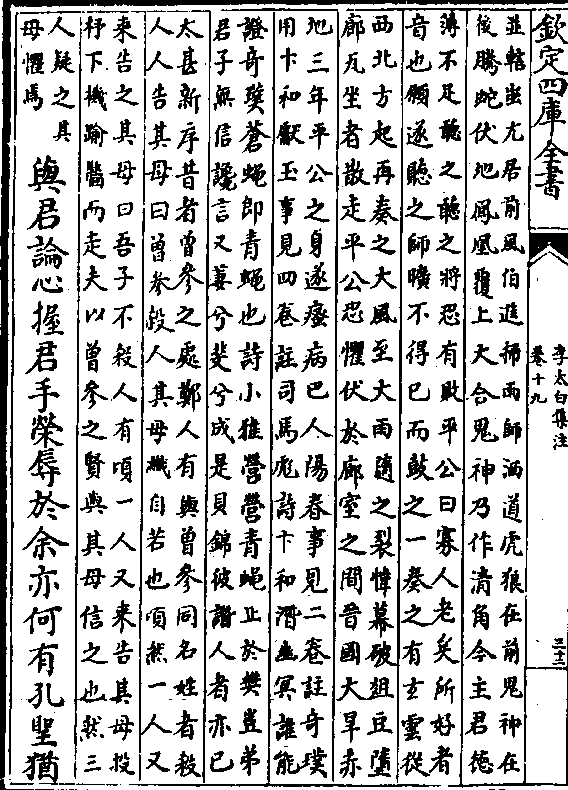 欽定四庫全書
李太白集注
卷十九
並轄蚩尤居前風伯進掃雨師洒道虎狼在前鬼神在
後騰蛇伏地鳳凰覆上大合鬼神乃作清角今主君徳
薄不足聽之聽之將恐有敗平公曰寡人老矣所好者
音也願遂聽之師曠不得已而鼓之一奏之有玄雲從
西北方起再奏之大風至大雨隨之裂帷幕破俎豆墮
廊瓦坐者散走平公恐懼伏於廊室之間晉國大旱赤
地三年平公之身遂癃病巴人陽春事見二卷註奇璞
用卞和獻玉事見四卷註司馬彪詩卞和潛幽冥誰能
證奇璧蒼蠅即青蠅也詩小雅營營青蠅止於樊豈弟
君子無信讒言又萋兮斐兮成是貝錦彼譖人者亦已
太甚新序昔者曾參之處鄭人有與曾參同名姓者殺
人人告其母曰曾參殺人其母織自若也頃然一人又
來告之其母曰吾子不殺人有頃一人又來告其母投
杼下機踰牆而走夫以曾參之賢與其母信之也然三
人疑之其
母懼焉
與君論心握君手榮辱於余亦何有孔聖猶